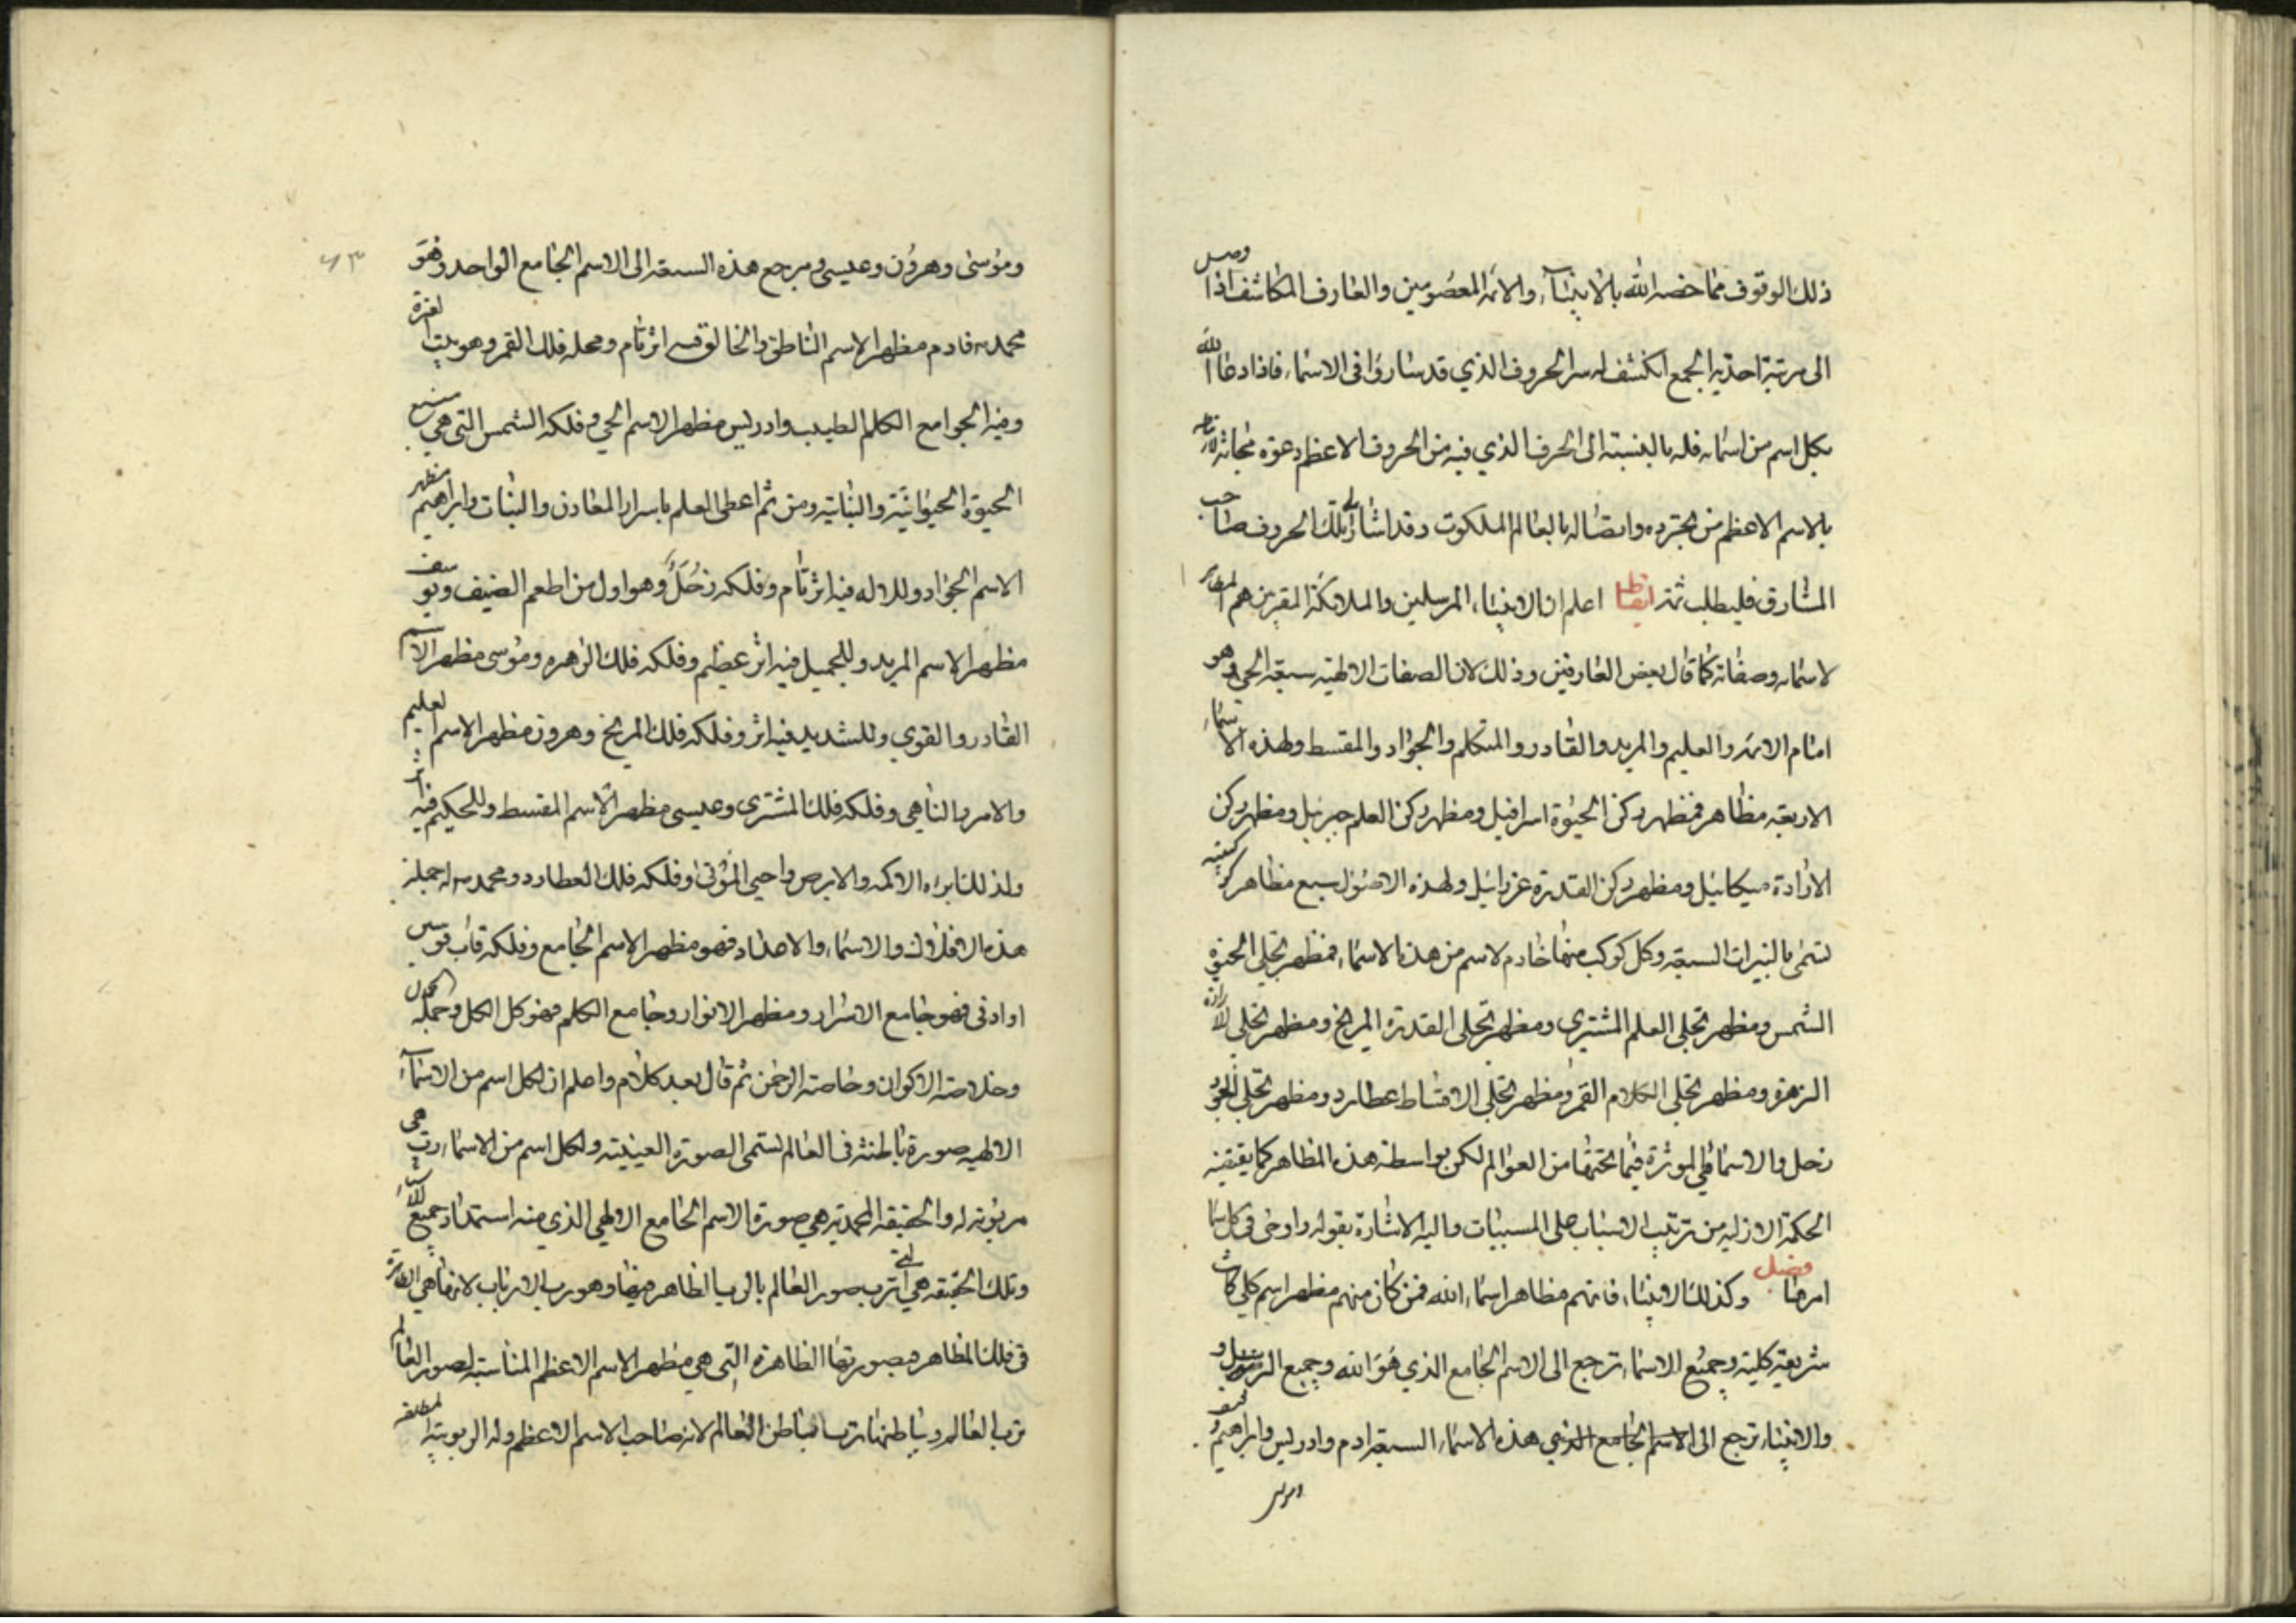 ذلك الوقوف مما خصه الله بالانبيآء والائمة المعصومين والعارف المكاشف اذا وصل
الى مرتبة احدية الجمع انكشف له سر الحروف الذي قد سار في الاسماء فاذا دعا الله
بكل اسم من اسمائه فله بالنسبة الى الحرف الذي فيه من الحروف الاعظم دعوة مجابة
بالاسم الاعظم من تجرده واتصاله بالعالم الملكوت وقد اشار الى تلك الحروف صاحب
المشارق فليطلب ثمه ايقاظ اعلم ان الانبياء المرسلين والملائكة المقربين هم المظاهر
لاسمائه وصفاته كما قال بعض العارفين وذلك لان الصفات الالهية سبعة الحي وهو
امام الائمة والعليم والمريد والقادر والمتكلم والجواد والمقسط ولهذه الاسماء
الاربعة مظاهر فمظهر ركن الحيوة اسرافيل ومظهر ركن العلم جبرئيل ومظهر ركن
الارادة ميكائيل ومظهر ركن القدرة عزرائيل ولهذه الاصول سبع مظاهر كوكبية
تسمى بالنيرات السبعة وكل كوكب منها خادم لاسم من هذه الاسماء فمظهر تجلي الحيوة
الشمس ومظهر تجلي العلم المشتري ومظهر تجلي القدرة المريخ ومظهر تجلي الارادة
الزهرة ومظهر تجلي الكلام القمر ومظهر تجلي الاقساط عطارد ومظهر تجلي الجود
زحل والاسماء هي الموثرة فيما تحتها من العوالم لكن بواسطة هذه المظاهر كما يقتضيه
الحكمة الازلية من ترتيب الاسباب على المسببات واليه الاشارة بقوله واوحى في كل سماء
امرها فصل وكذلك الانبياء فانهم مظاهر اسماء الله فمن كان منهم مظهر اسم كلي كانت
شريعته كلية وجميع الاسماء ترجع الى الاسم الجامع الذي هو الله وجميع الرسل و
والانبياء ترجع الى الاسم الجامع الذي هذه الاسماء السبعة ادم وادريس وابراهيم ويوسف
٧٣
وموسى وهرون وعيسى ومرجع هذه السبعة الى الاسم الجامع الواحد وهو
محمد ص فادم مظهر الاسم الناطق والخالق فيه اثر تام ومحله فلك القمر وهو بيت العزة
وفيه الجوامع الكلم الطيب وادريس مظهر الاسم الحي وفلكه الشمس التي هي منبع
الحيوة الحيوانية والنباتية ومن ثم اعطى العلم باسرار المعادن والنبات وابراهيم مظهر
الاسم الجواد وللاله فيه اثر تام وفلكه زحل وهو اول من اطعم الضيف ويوسف
مظهر الاسم المريد وللجميل فيه اثر عظيم وفلكه فلك الزهره وموسى مظهر الاسم
القادر والقوي وللشديد فيه اثر وفلكه فلك المريخ وهرون مظهر الاسم العليم
والامر والناهي وفلكه فلك المشترى وعيسى مظهر الاسم المقسط وللحكيم فيه اثر
ولذلك ابرء الاكمه والابرص واحيى الموتى وفلكه فلك العطارد ومحمد ص له جملة
هذه الافلاك والاسماء والاعداد فهو مظهر الاسم الجامع وفلكه قاب قوسين
او ادنى فهو جامع الاسرار ومظهر الانوار وجامع الكلم فهو كل الكل وجملة
وخلاصة الاكوان وخاصة الرحمن ثم قال بعد كلام واعلم ان لكل اسم من الاسمآء
الالهية صورة باطنة في العالم تسمى الصورة العينية ولكل اسم من الاسماء رب هي
مربوبة له والحقيقة المحمدية هي صورة الاسم الجامع الالهي الذي منه استمداد جميع الاسماء
وتلك الحقيقة هي التي ترب صور العالم بالرب الظاهر فيها وهو رب الارباب لانها هي الظاهرة
في تلك المظاهر فبصورتها الظاهرة التي هي مظهر الاسم الاعظم المناسبة لصور العالم
ترب العالم وبباطنها ترب باطن العالم لانه صاحب الاسم الاعظم وله الربوبية المطلقة